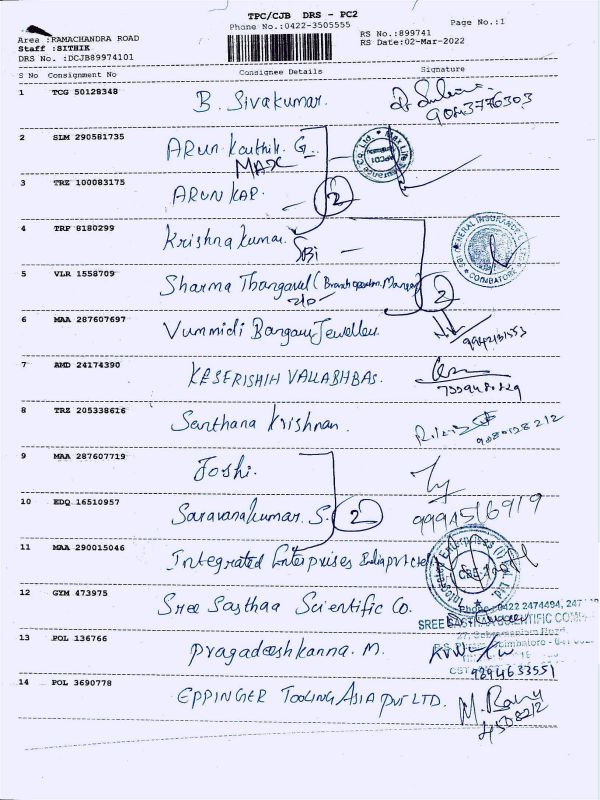 TPC/CJB DRS - PC2
Phone No.:0422-3505555
Page No.:1
Area :RAMACHANDRA ROAD
Staff :SITHIK
DRS No. :DCJB89974101
RS No.:899741
RS Date:02-Mar-2022
S No Consignment No Consignee Details Signature
1 TCG 50128348 B. Sivakumar.
9043776303
2 SLM 290581735 ARun Karthik. G
MAX
3 TRZ 100083175 ARUN KAR. 2
4 TRF 8180299 Krishna kumar.
SBi
5 VLR 1558709 Sharma Thangavel (Branch operation Manager) 2
6 MAA 287607697 Vummidi Bangaru Jewellers
7 AMD 24174390 KESERISHIH VALLABHBAS.
8 TRZ 205338616 Santhana Krishnan.
9 MAA 287607719 Joshi.
10 EDQ 16510957 Saravanakumar. S. 2
11 MAA 290015046 Integrated Enterprises India pvt
12 GYM 473975 Sree Sasthaa Scientific Co.
Phone: 0422 2474494,
SREE SASTHAA SCIENTIFIC
13 POL 136766 Pragadeeshkanna. M.
9294633551
14 POL 3690778 EPPINGER TOOLING ASIA PVT LTD.